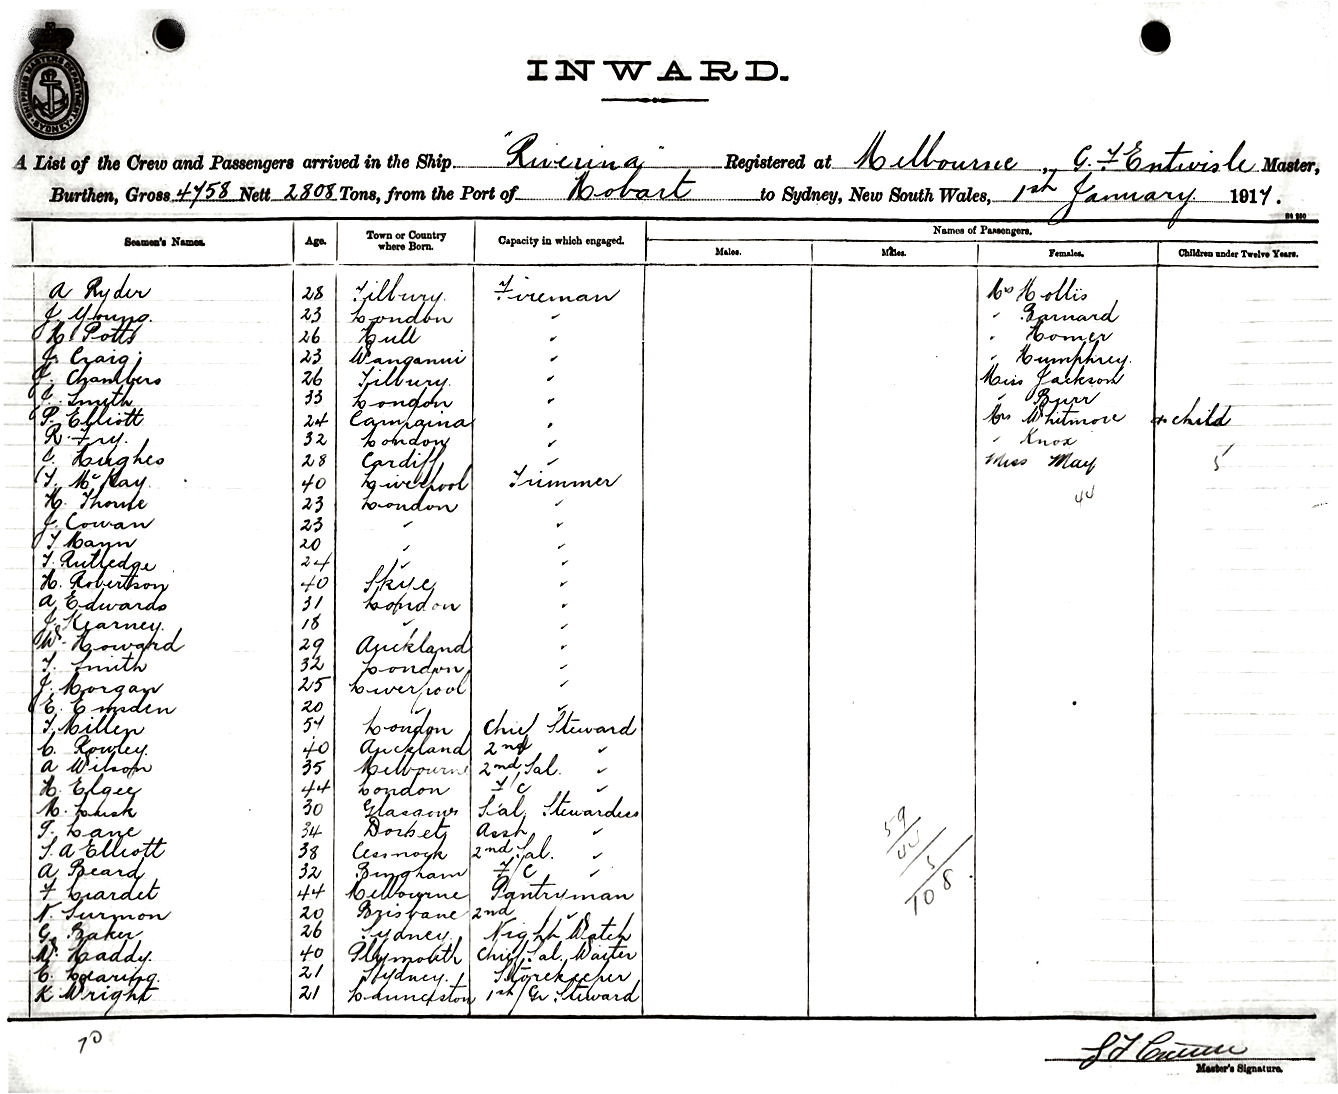 SHIPPING MASTERS DEPARTMENT SYDNEY
INWARD.
A List of the Crew and Passengers arrived in the Ship "Riverina" Registered at Melbourne, G. F Entwisle Master,
Burthen, Gross 4758 Nett 2808 Tons, from the Port of Hobart to Sydney, New South Wales, 1st January 1917.
Seamen's Names. Age. Town or Country where Born. Capacity in which engaged. Names of Passengers.
Males. Males. Females. Children under Twelve Years.
A Ryder 28 Tilbury. Fireman Mrs Hollis
J. Young. 23 London " " Barnard
H. Potts 26 Hull " " Homer
J. Craig 23 Wanganui " " Humphrey.
J. Chambers 26 Tilbury. " Miss Jackson
J. Smith 33 London " " Burr
P. Elliott 24 " Mrs Whitmore & child
R. Fry. 32 London " " Knox
C. Hughes 28 Cardiff " Miss May 5
T. McKay. 40 Liverpool Trimmer
H. Thorne 23 London " 44
J. Cowan 23 " "
T Mann 20 " "
T. Rutledge 24 " "
H. Robertson 40 Skye "
A Edwards 31 London "
J. Kearney. 18 " "
W. Howard 29 Auckland "
T. Smith 32 London "
J. Morgan 25 Liverpool "
E. Emsden 20 " "
T. Millen 54 London Chief Steward
C. Rowley. 40 Auckland 2nd "
A Wilson 35 Melbourne 2nd Sal. "
H. Elgee 44 London F/C "
M. Lusk 30 Glasgow Sal. Stewardess
P. Lane 34 Dorset Asst "
S. A Elliott 38 Cessnock 2nd Sal. "
A Beard 32 Bingham F/C "
F Liardet 44 Melbourne Pantryman
N. Surmon 20 Brisbane 2nd "
G. Baker 26 Sydney Night Watch
W. Haddy. 40 Plymouth Chief Sal. Waiter
E. Learing. 21 Sydney. Storekeeper
K. Wright 21 Launceston 1st Gr. Steward
59
44
5
108.
70
Master's Signature.